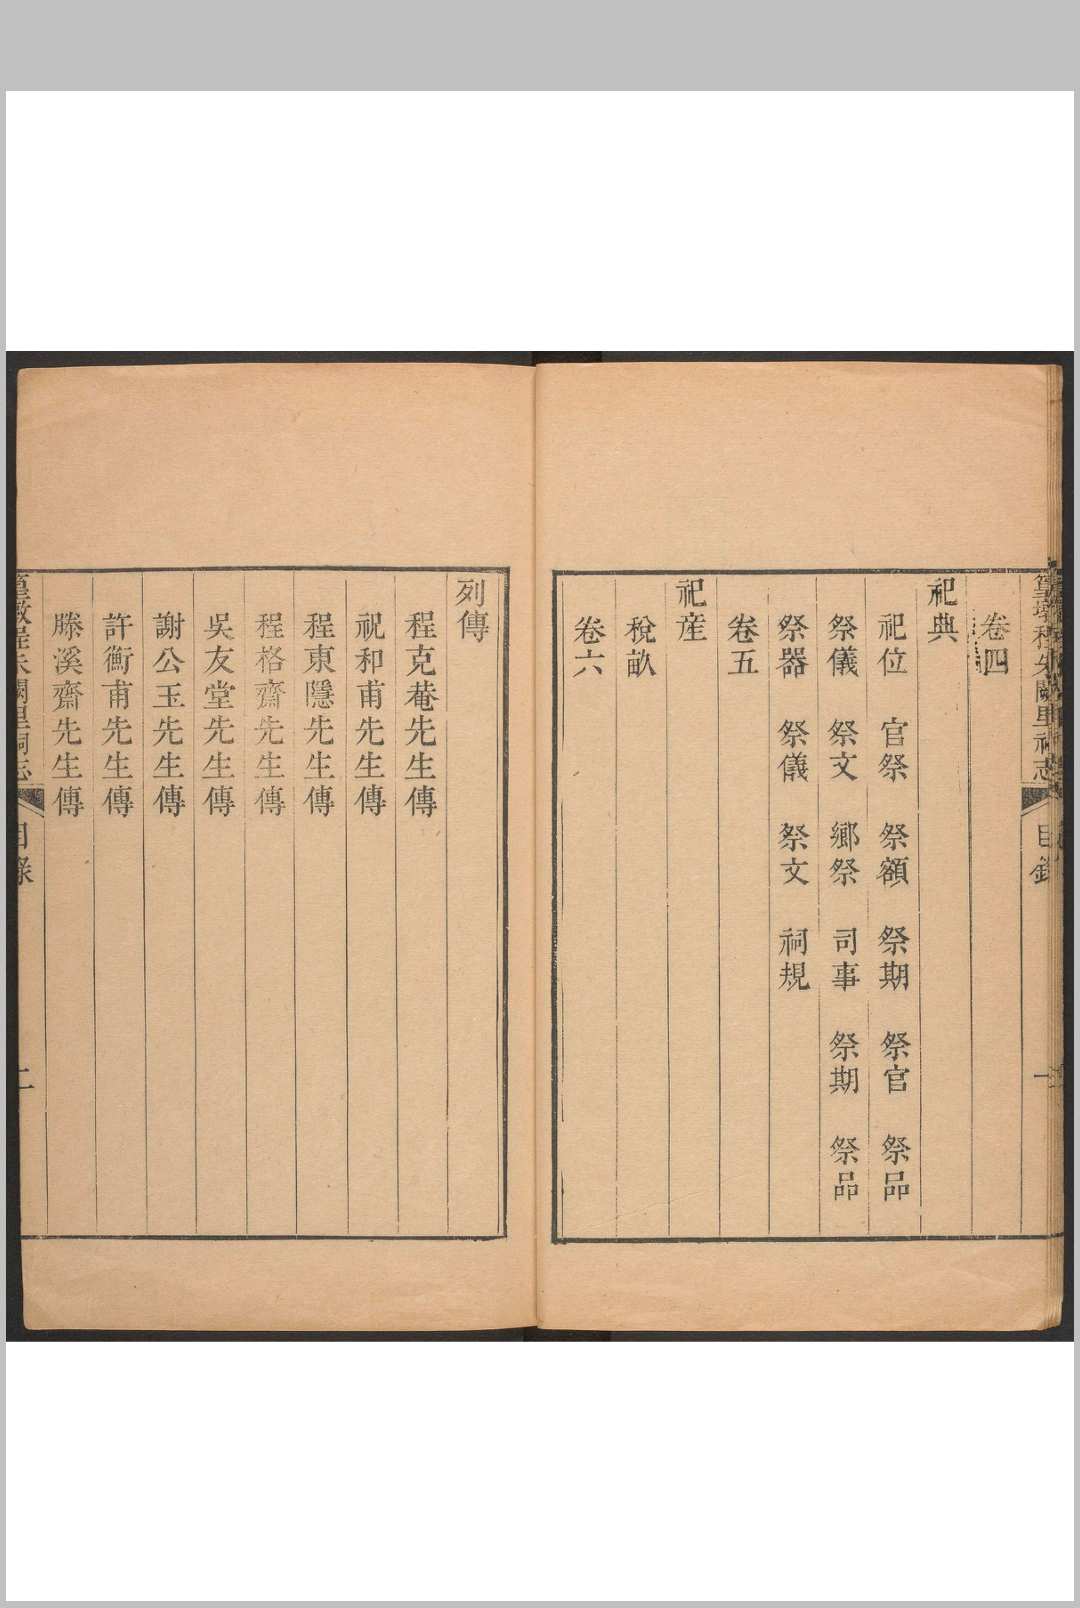 篁墩程朱闕里祠志
目錄
一
卷四
祀典
祀位 官祭 祭額 祭期 祭官 祭品
祭儀 祭文 鄉祭 司事 祭期 祭品
祭器 祭儀 祭文 祠規
卷五
祀産
稅畝
卷六
列傳
程克菴先生傳
祝和甫先生傳
程東隱先生傳
程格齋先生傳
吳友堂先生傳
謝公玉先生傳
許衡甫先生傳
滕溪齋先生傳
篁墩程朱闕里祠志
目錄
二